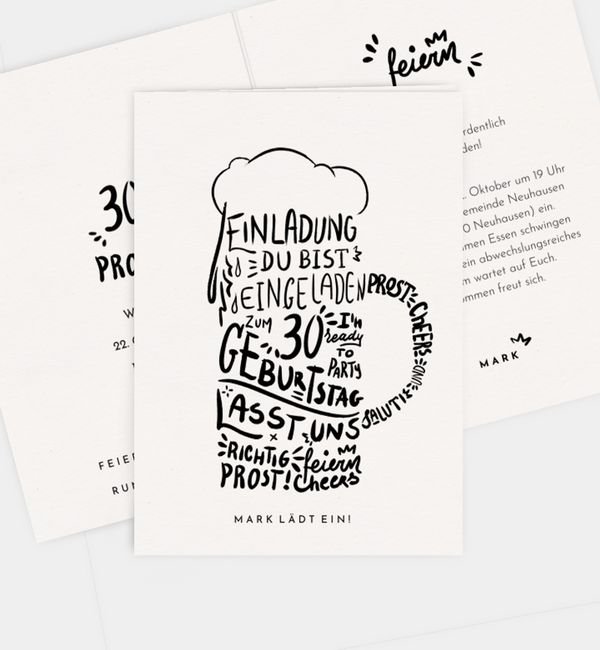 EINLADUNG
DU BIST
EINGELADEN
ZUM 30
GEBURTSTAG
I'm
ready
TO
PARTY
LASST UNS
RICHTIG feiern
PROST! Cheers
PROST CHEERS UND SALUT!
MARK LÄDT EIN!
30
22.
FEIER
feiern
den!
Oktober um 19 Uhr
Neuhausen
Neuhausen) ein.
Essen schwingen
ein abwechslungsreiches
wartet auf Euch.
freut sich.
MARK